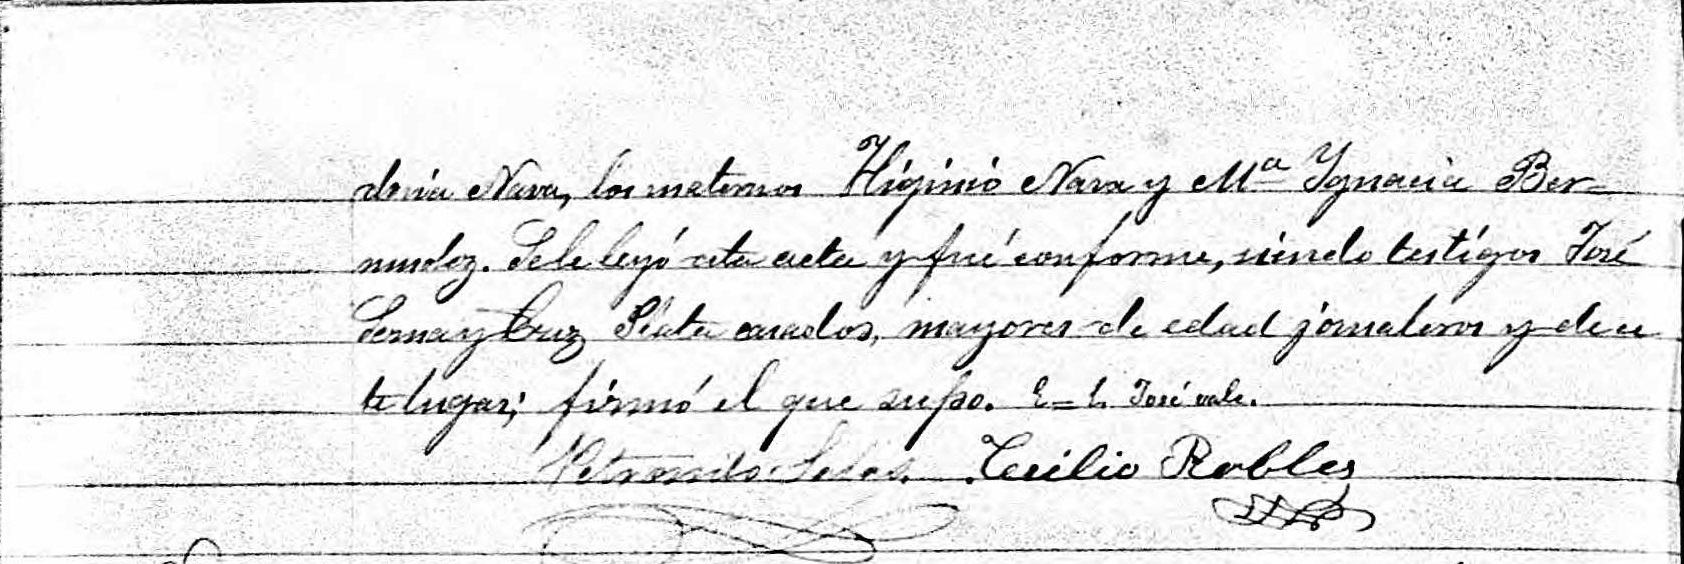 donia Nava, los maternos Higinio Nava y Mª Ygnacia Ber-
mudez. Se le leyó esta acta y fué conforme, siendo testigos José
Serna y Cruz casados, mayores de edad jornaleros y de es
te lugar; firmó el que supo. E=L José vale.
Cecilio Robles